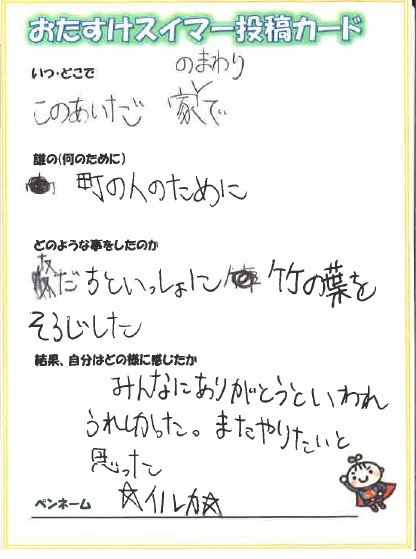 おたすけスイマー投稿カード
いつ・どこで
のまわり
このあいだ 家で
誰の(何のために)
町の人のために
どのような事をしたのか
友だちといっしょに 竹の葉を
そうじした
結果、自分はどの様に感じたか
みんなにありがとうといわれ
うれしかった。またやりたいと
思った
ペンネーム ☆イルカ☆